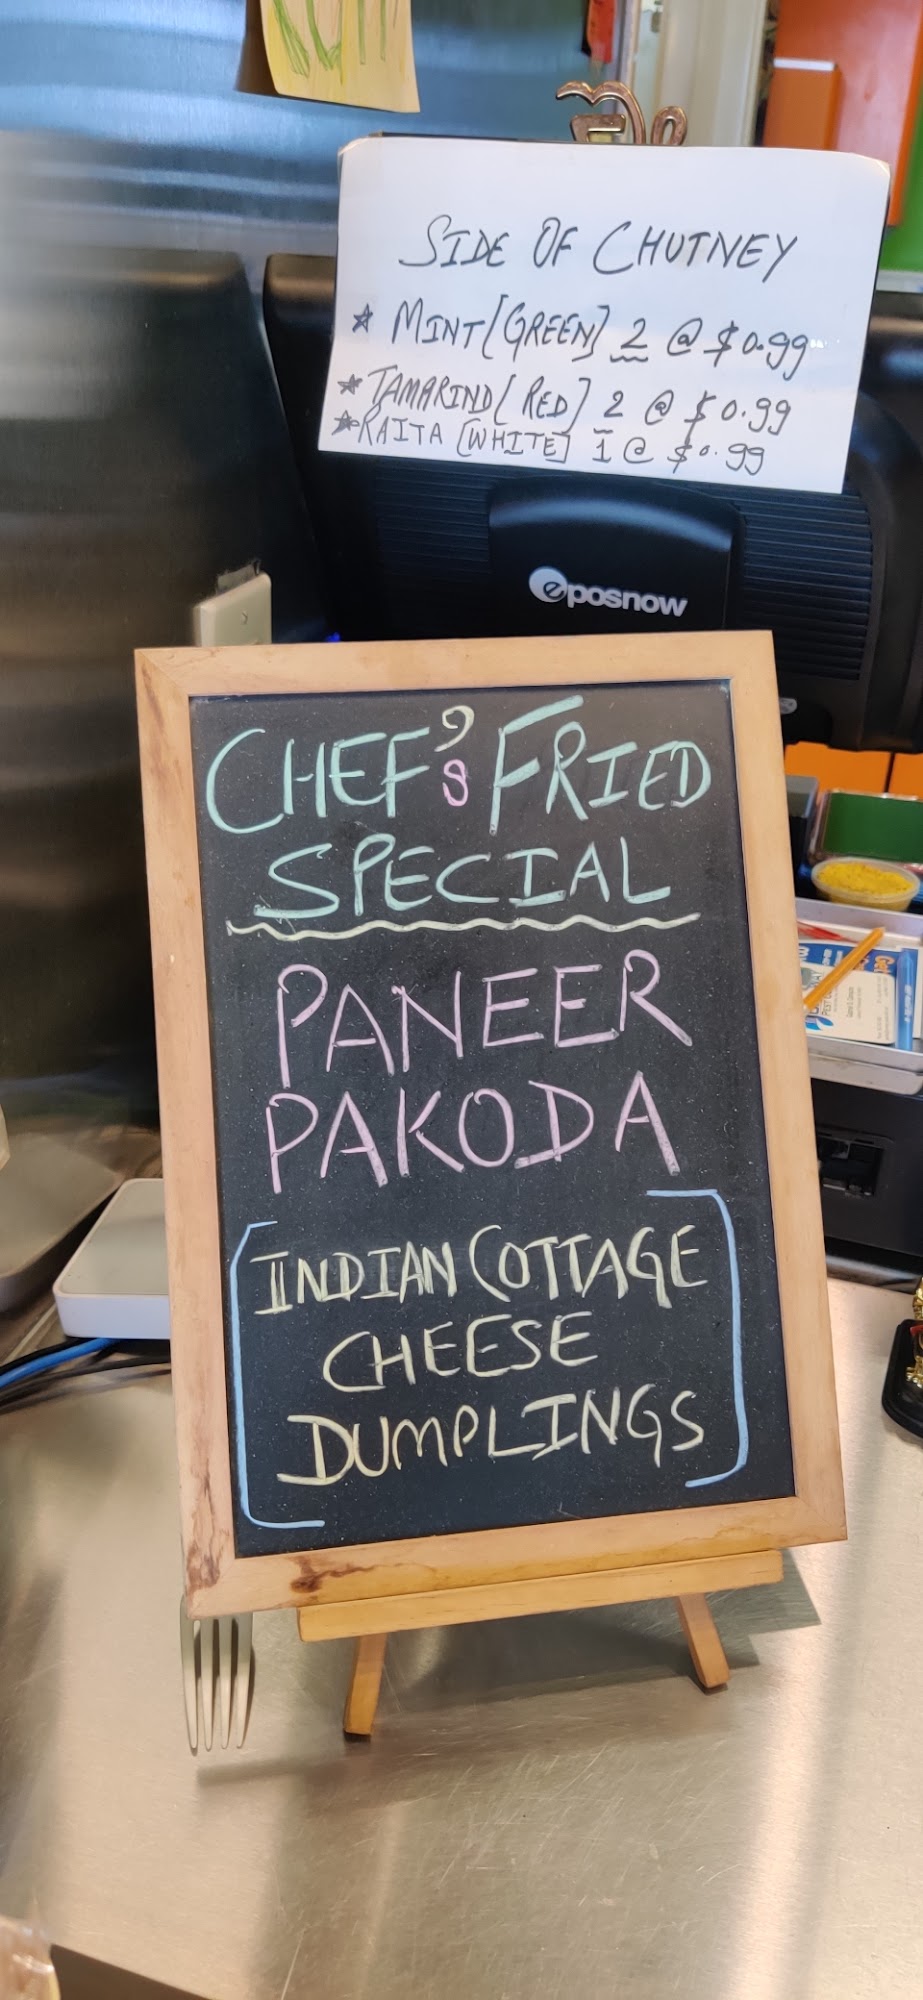 SIDE OF CHUTNEY
☆ MINT [GREEN] 2 @ $0.99
☆ TAMARIND [RED] 2 @ $0.99
☆ RAITA [WHITE] 1 @ $0.99
eposnow
CHEF'S FRIED
SPECIAL
PANEER
PAKODA
[INDIAN COTTAGE
CHEESE
DUMPLINGS]